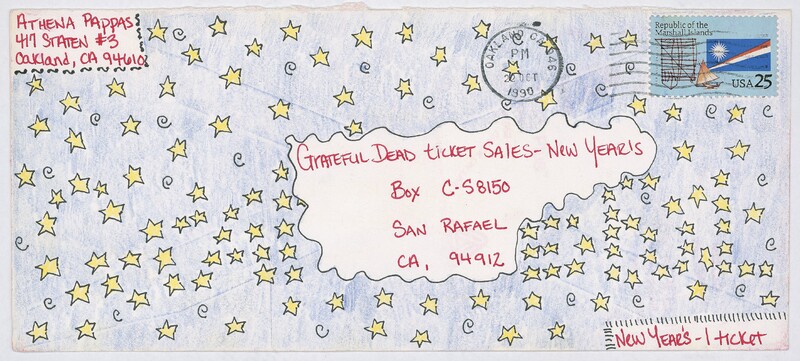 ATHENA PAPPAS
417 STATEN #3
Oakland, CA 94610
OAKLAND CA 946
PM
1990
Republic of the
Marshall Islands
USA 25
GRATEFUL DEAD TICKET SALES - NEW YEAR'S
BOX C-S8150
SAN RAFAEL
CA, 94912
NEW YEAR'S - 1 TICKET